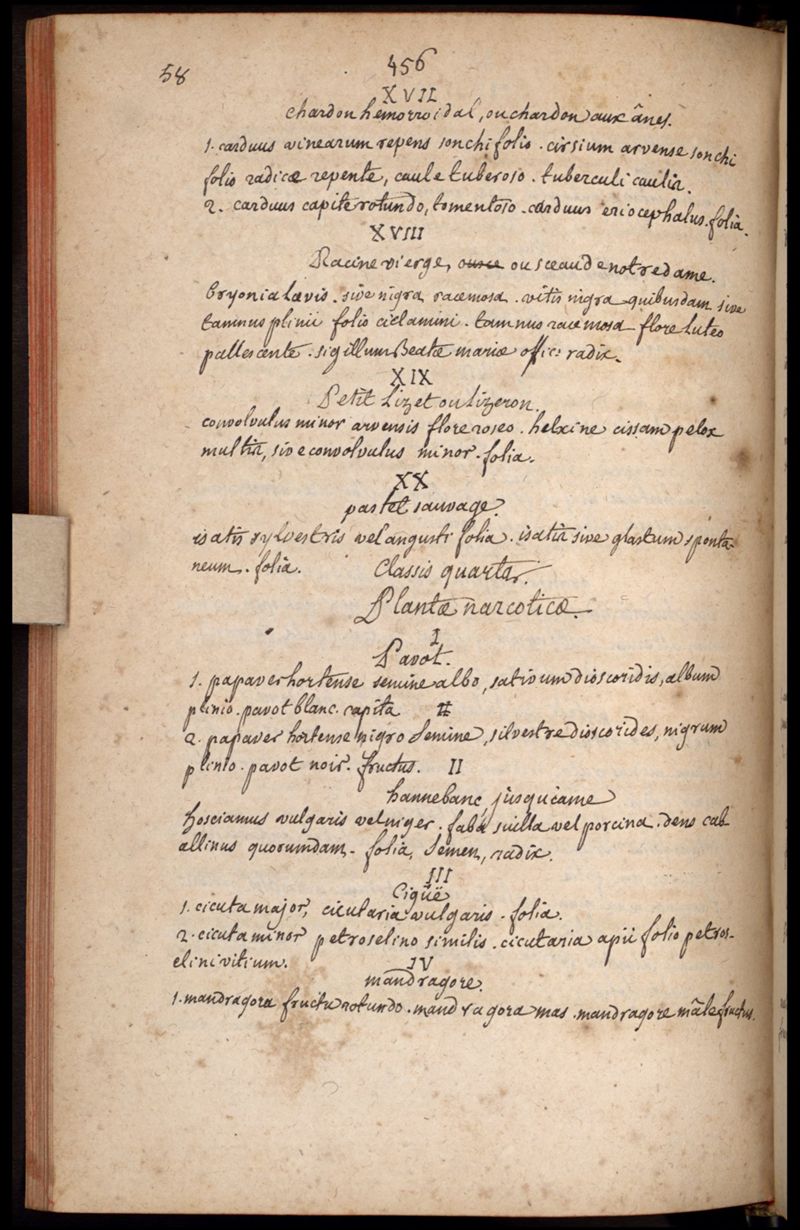 58
456
XVII
chardon hemorroidal, ou chardon aux ânes.
1. carduus vinearum repens sonchi folio. cirsium arvense sonchi
folio radicæ repente, caule tuberoso. tuberculi caulis.
2. carduus capite rotundo, tomentoso. carduus eriocephalus. folia.
XVIII
Racine vierge, ou sceau de notre dame.
bryonia lævis. sive nigra racemosa. vitis nigra quibusdam sive
tamnus plinii folio ciclamini. tamnus racemosa flore luteo
pallescente. sigillum Beatæ mariæ offic: radix.
XIX
Petit Lizet ou lizeron.
convolvulus minor arvensis flore roseo. helxine cissampelox
multis, sive convolvulus minor. folia.
XX
pastel sauvage.
isatis sylvestris vel angusti folia. isatis sive glastum sponta-
neum. folia.
Classis quarta.
Plantæ narcoticæ.
I
Pavot.
1. papaver hortense semine albo, sativum dioscoridis, album
plinio. pavot blanc. capita
2. papaver hortense nigro semine, silvestre dioscorides, nigrum
plinio. pavot noir. fructus. II
hannebane, jusquiame
hosciamus vulgaris vel niger. faba suilla vel porcina. dens cab
allinus quorumdam. folia, semen, radix.
III
Cigüe
1. cicuta major, cicutaria vulgaris. folia.
2. cicuta minor petroselino similis. cicutaria apii folio petros-
elini vitium.
IV
mandragore.
1. mandragora fructu rotundo. mandragora mas. mandragore mâle fructus.